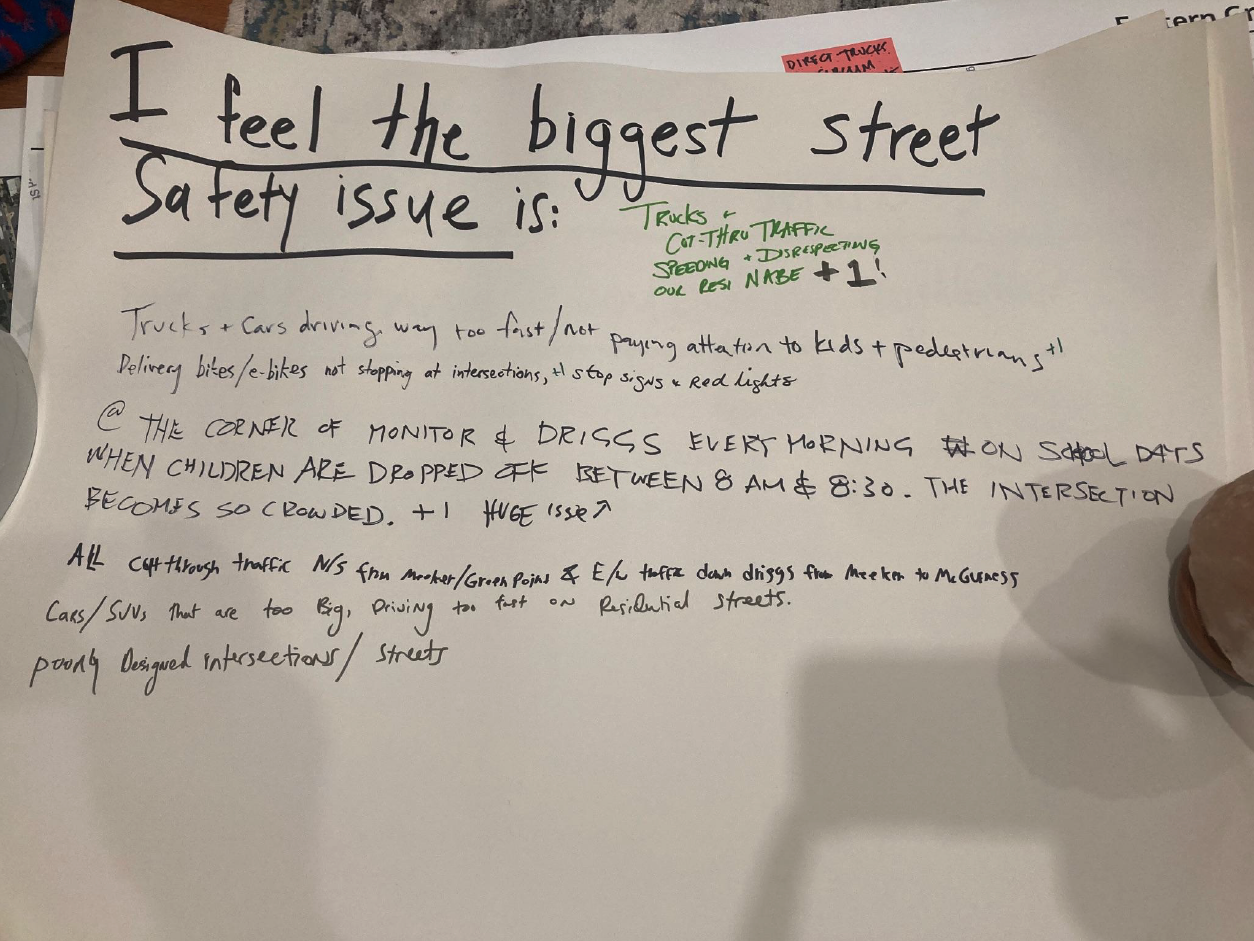 DIRECT TRUCKS
I feel the biggest street
Safety issue is:
TRUCKS +
CUT-THRU TRAFFIC
SPEEDING + DISRESPECTING
OUR RESI NABE +1!
Trucks + Cars driving way too fast/not paying attention to kids + pedestrians +1
Delivery bikes/e-bikes not stopping at intersections, +1 stop signs & Red lights
@ THE CORNER OF MONITOR & DRIGGS EVERY MORNING ON SCHOOL DAYS
WHEN CHILDREN ARE DROPPED OFF BETWEEN 8 AM & 8:30. THE INTERSECTION
BECOMES SO CROWDED. +1 HUGE issue
ALL cutthrough traffic N/S from Meeker/GreenPoint & E/W traffic down driggs from Meeker to McGuness
Cars/SUVs that are too Big, Driving too fast on Residential Streets.
poorly Designed intersections/ streets